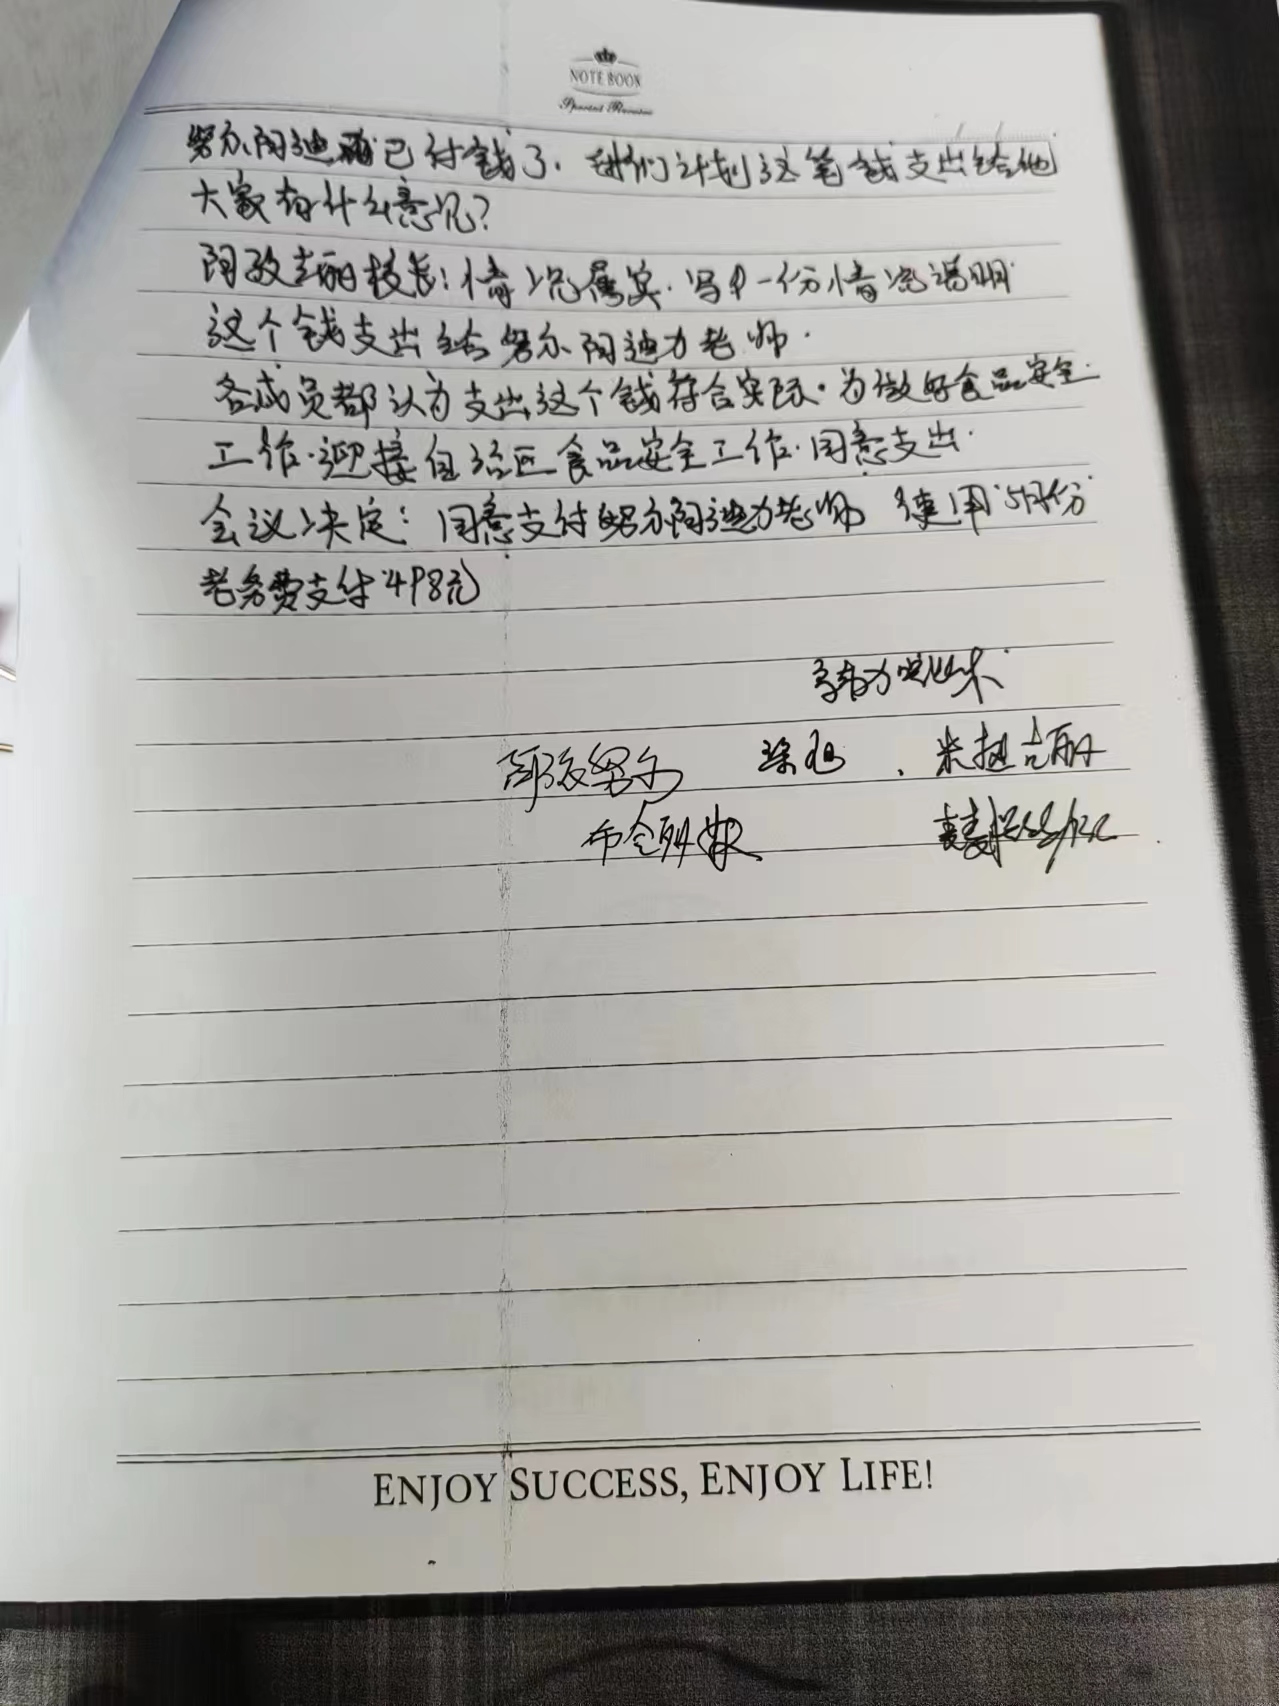 NOTE BOOK
努尔阿迪力已付钱了.我们计划这笔钱支出给他
大家有什么意见?
阿孜古丽校长:情况属实.写个一份情况说明
这个钱支出给努尔阿迪力老师.
各成员都认为支出这个钱符合实际.为做好食品安全
工作.迎接自治区食品安全工作.同意支出.
会议决定:同意支付努尔阿迪力老师 使用5月份
老务费支付498元
阿孜努尔 米热古丽
布合列
ENJOY SUCCESS, ENJOY LIFE!